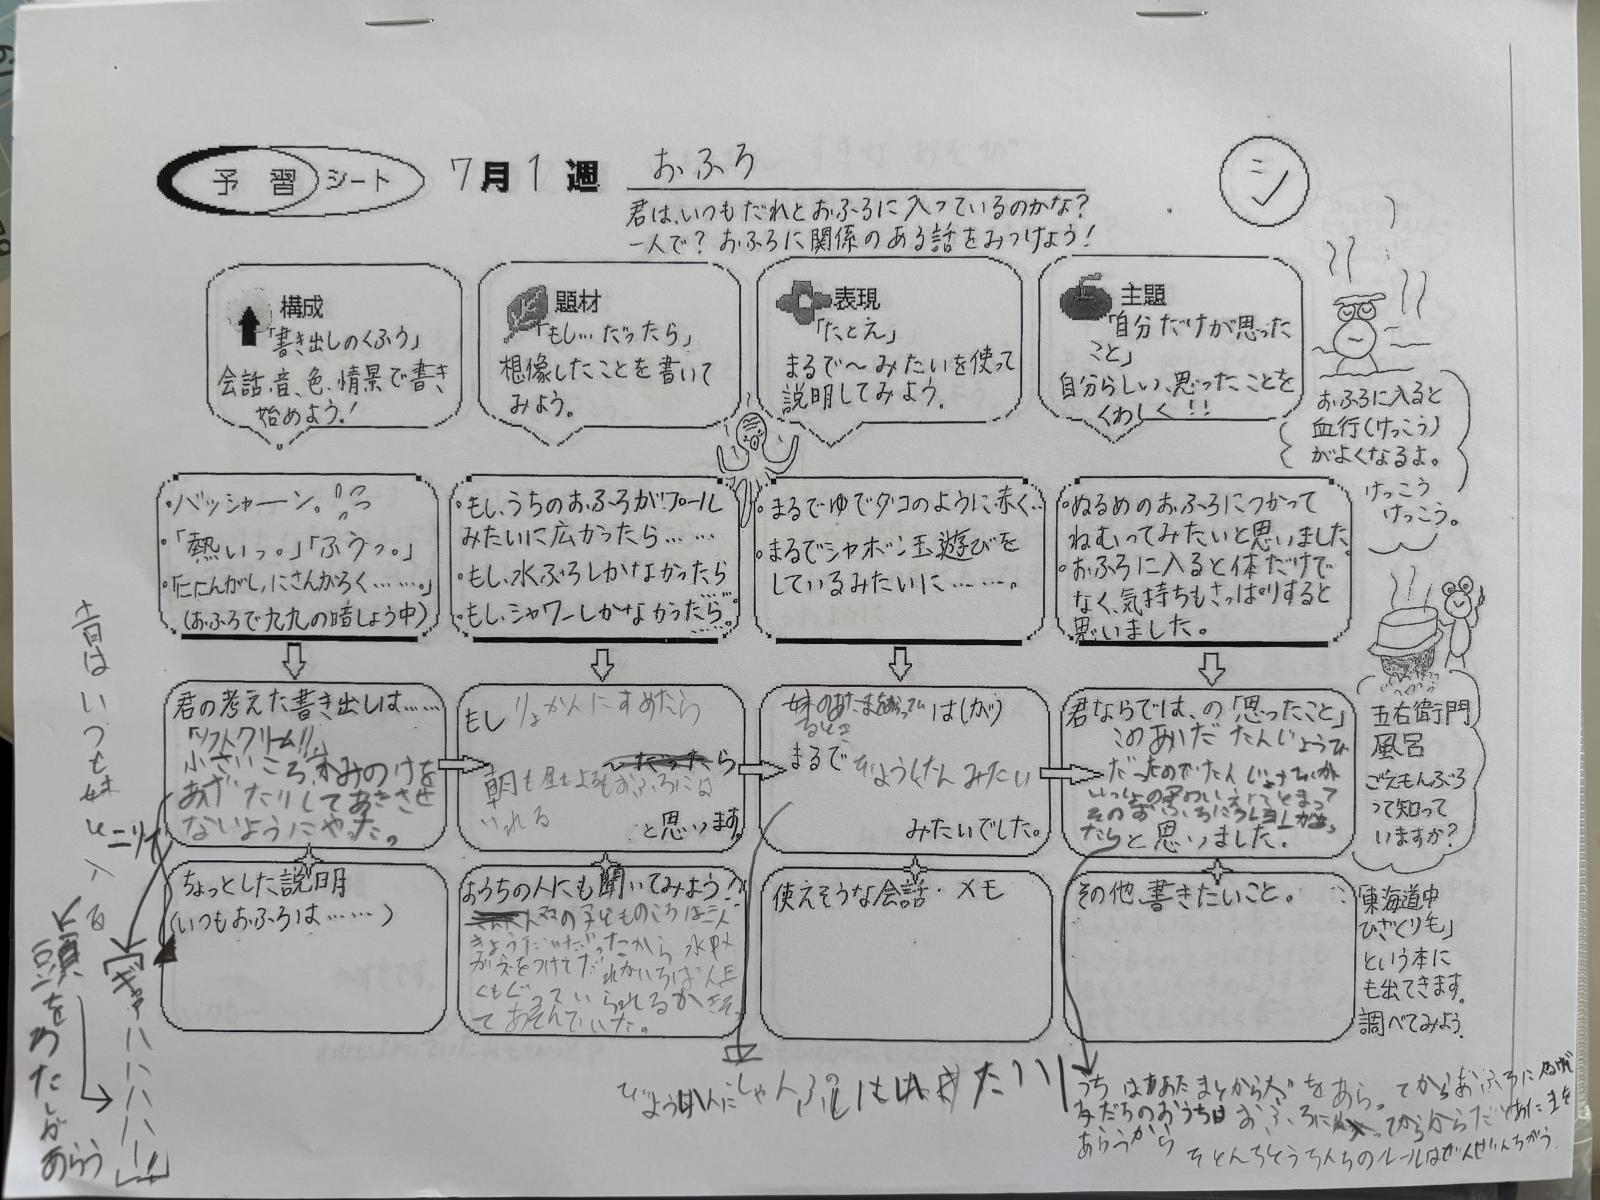 予習シート 7月1週 おふろ
シ
君は、いつもだれとおふろに入っているのかな?
一人で?おふろに関係のある話をみつけよう!
構成
「書き出しのくふう」
会話、音、色、情景で書き
始めよう!
題材
「もし…だったら」
想像したことを書いて
みよう。
表現
「たとえ」
まるで〜みたいを使って
説明してみよう。
主題
「自分だけが思った
こと」
自分らしい、思ったことを
くわしく!!
おふろに入ると
血行(けっこう)
がよくなるよ。
けっこう
けっこう。
・バッシャーン。
・「熱いっ。」「ふうっ。」
・「ににんがし、にさんがろく……。」
(おふろで九九の暗しょう中)
・もし、うちのおふろがプール
みたいに広かったら……
・もし、水ぶろしかなかったら
・もし、シャワーしかなかったら…。
・まるでゆでダコのように赤く…
・まるでシャボン玉遊びを
しているみたいに……。
・ぬるめのおふろにつかって
ねむってみたいと思いました。
・おふろに入ると体だけで
なく、気持ちもさっぱりすると
思いました。
君の考えた書き出しは……
「ソフトクリーム!!」
小さいころ、
あげたりしてあきさせ
ないようにやった。
もし りょかんにすめたら
朝も昼もよるもおふろには
いれる
と思います。
妹のあたまをあらって
るとき
は(が)
まるで びようしさん みたい
みたいでした。
君ならでは、の「思ったこと」
このあいだ たんじょうび
だっため
いっしょの
その
たらと思いました。
五右衛門
風呂
ごえもんぶろ
って知って
いますか?
ちょっとした説明
(いつもおふろは……)
おうちの人にも聞いてみよう!
ママの子どものころは三人
きょうだいだったから 水中メ
ガネをつけてだれがいちばん長
くもぐっていられるかきそっ
てあそんでいた。
使えそうな会話・メモ
その他、書きたいこと。
「東海道中
ひざくりも」
という本に
も出てきます。
調べてみよう。
昔はいつも妹と二人で入る
頭をわたしがあらう
「ギャアハハハハハー!!」
うちはあたまとからだをあら。てからおふろに
友だちのおうちは おふろに
あらうから
そとんちとうちんちのルールはぜんぜんちがう。